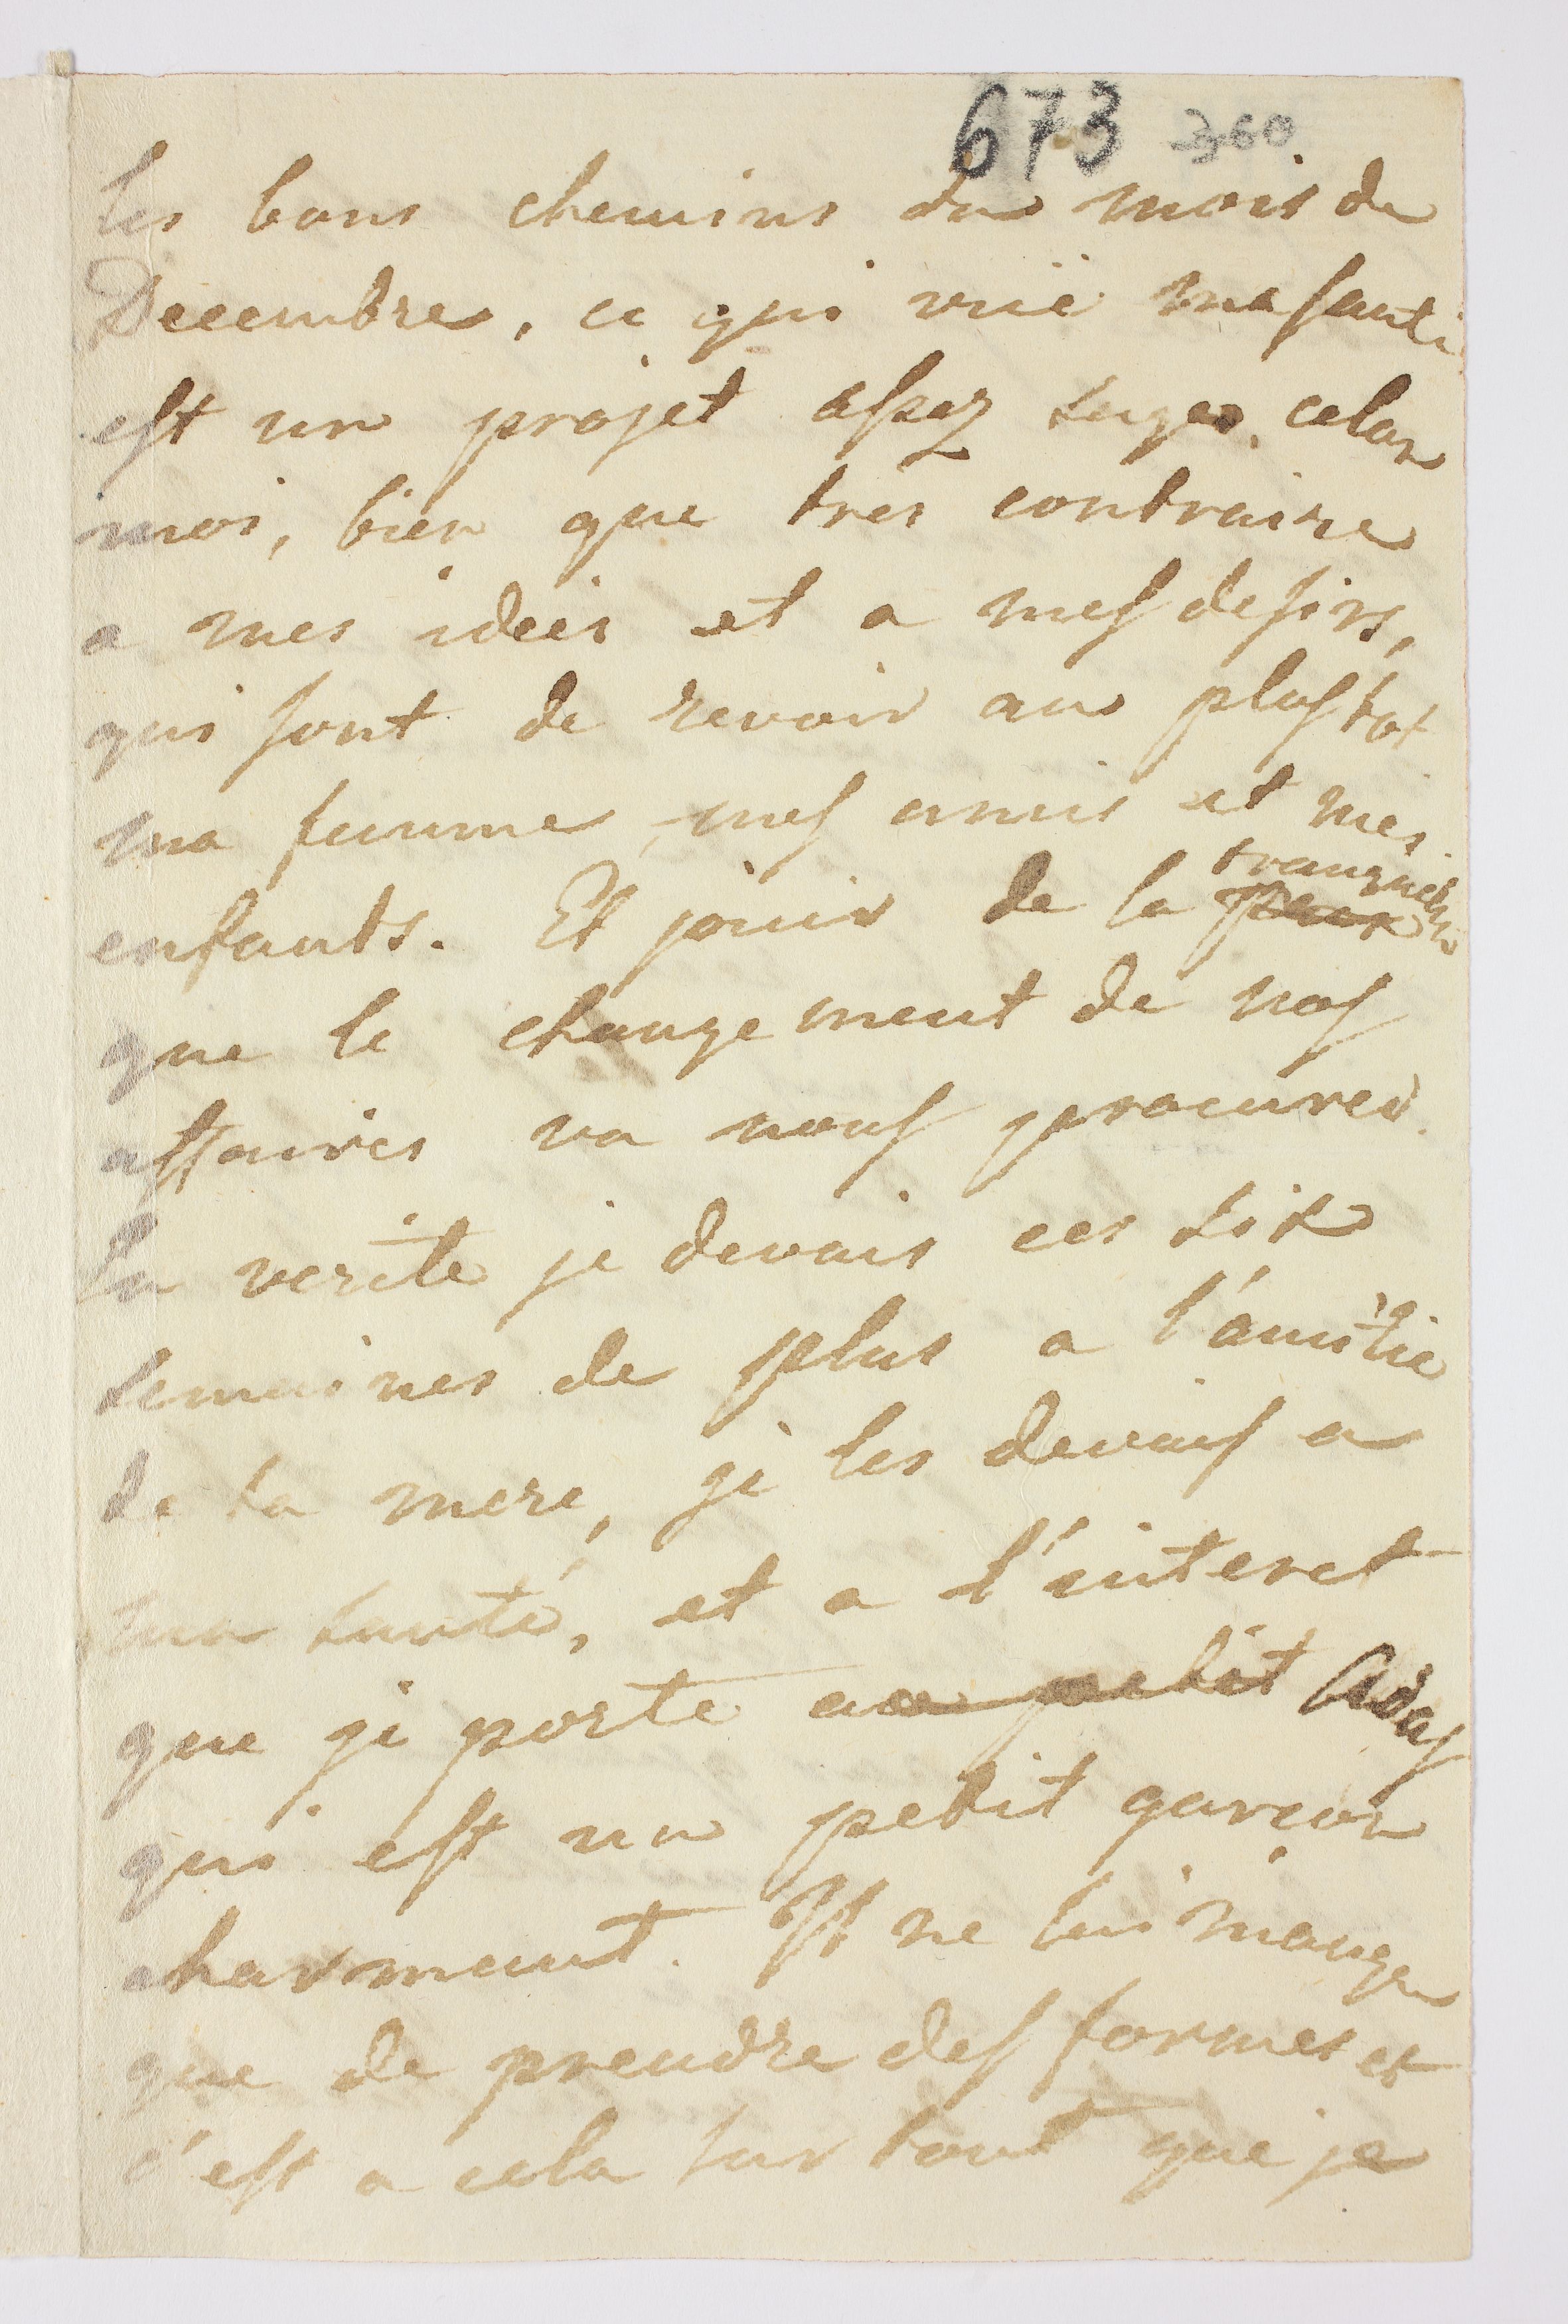 673 360
les bons chemins du mois de
Decembre, ce qui vüe ma santé
est un projet assez sage, celon
moi, bien que tres contraire
a mes idees et a mes desirs,
qui sont de revoir au plustot
ma femme, mes amis et mes
tranquilite
enfants. Et jouir de la paix
que le changement de nos
affaires va nous procurer.
La verité je devais ces six
semaines de plus a l'amitié
de ta mere, je les devais a
ma santé, et a l'interet
que je porte au petit Adas
qui est un petit garcon
charmant. Il ne lui manque
que de prendre des formes et
c'est a cela sur tout que je